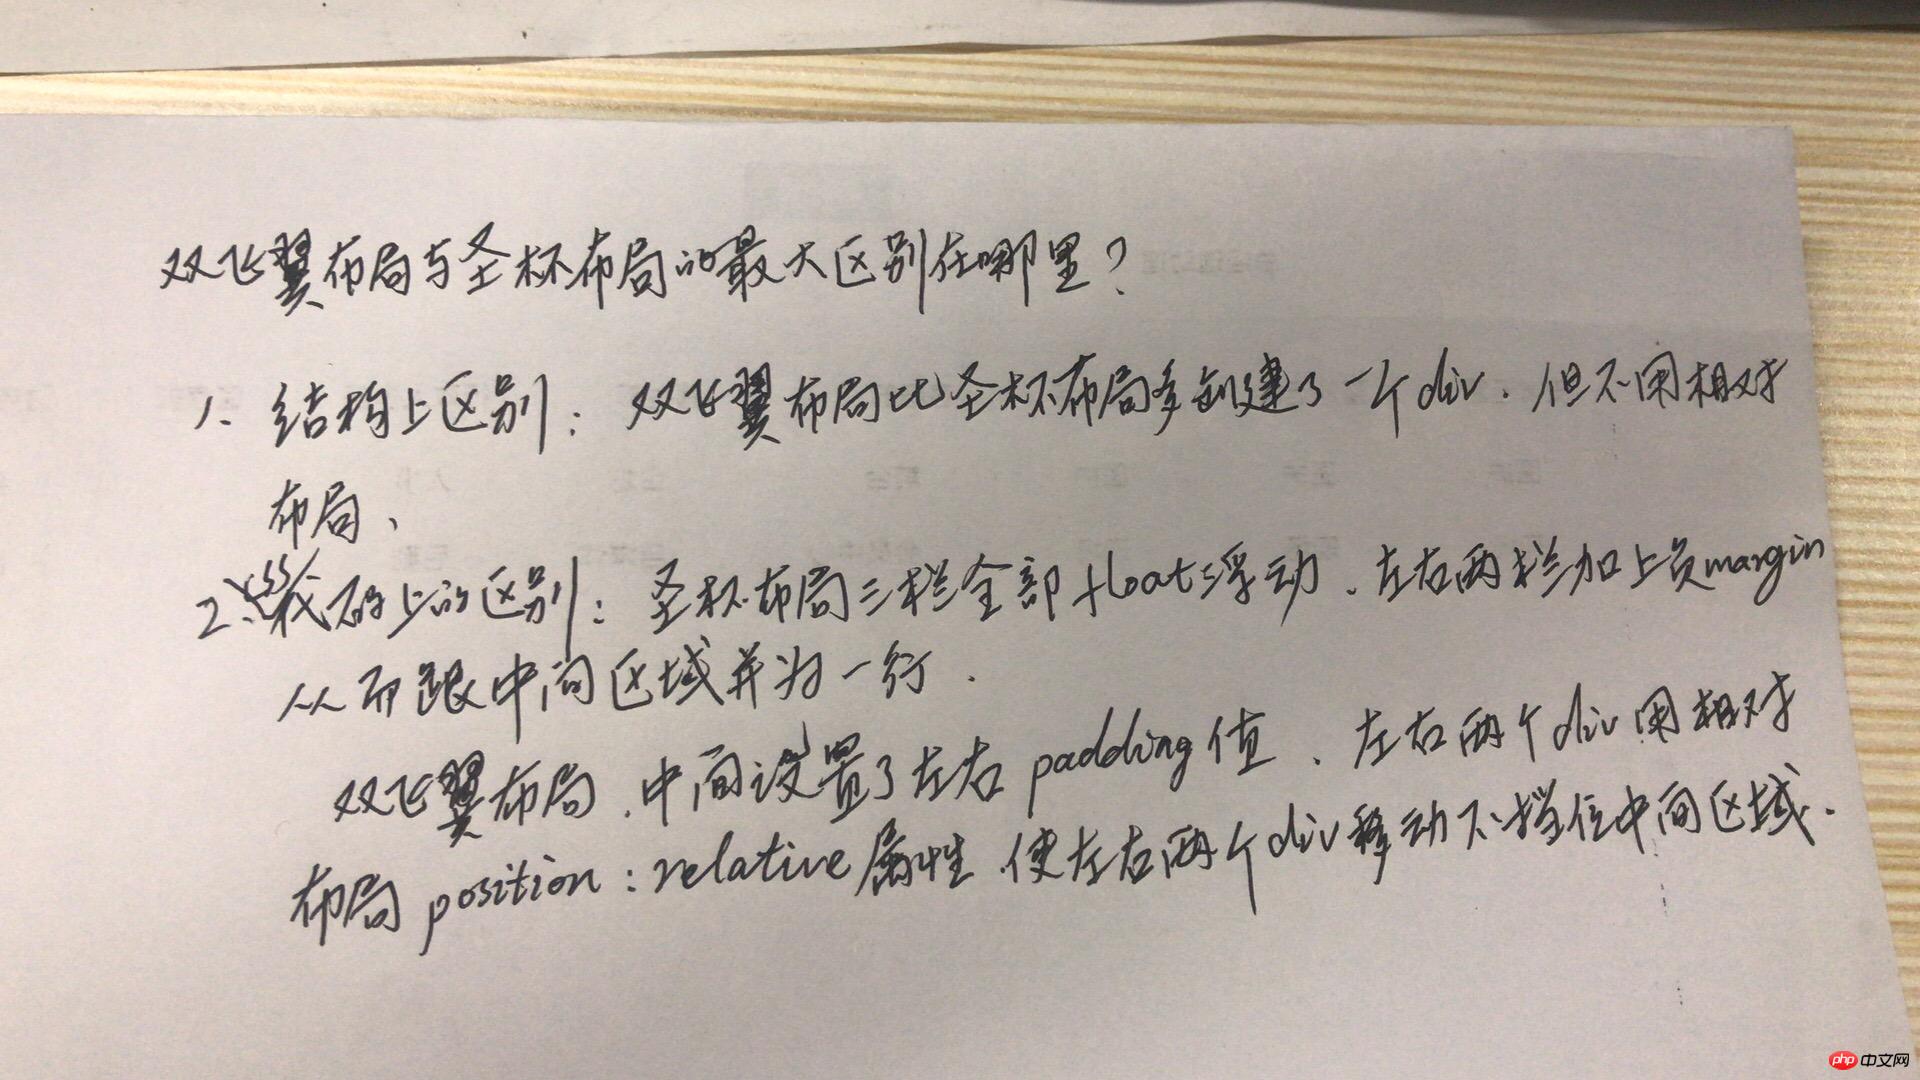 双飞翼布局与圣杯布局的最大区别在哪里？
1、结构上区别：双飞翼布局比圣杯布局多创建了一个div．但不用相对
布局、
2、css代码上的区别：圣杯布局三栏全部float浮动、左右两栏加上负margin
从而跟中间区域并为一行．
双飞翼布局、中间设置了左右padding值、左右两个div用相对
布局position：relative属性、使左右两个div移动不挡位中间区域．
php中文网